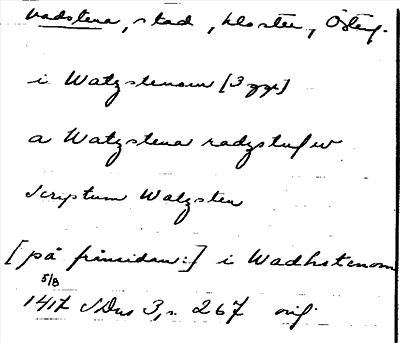 Vadstena, stad, kloster, Östg.
i Watzstenom [3 ggr]
a Watzstena radzstufw
Scriptum Watzsten
[på frånsidan:] i Wadhstenom
5/8
1417 SDns 3, s. 267 orig.